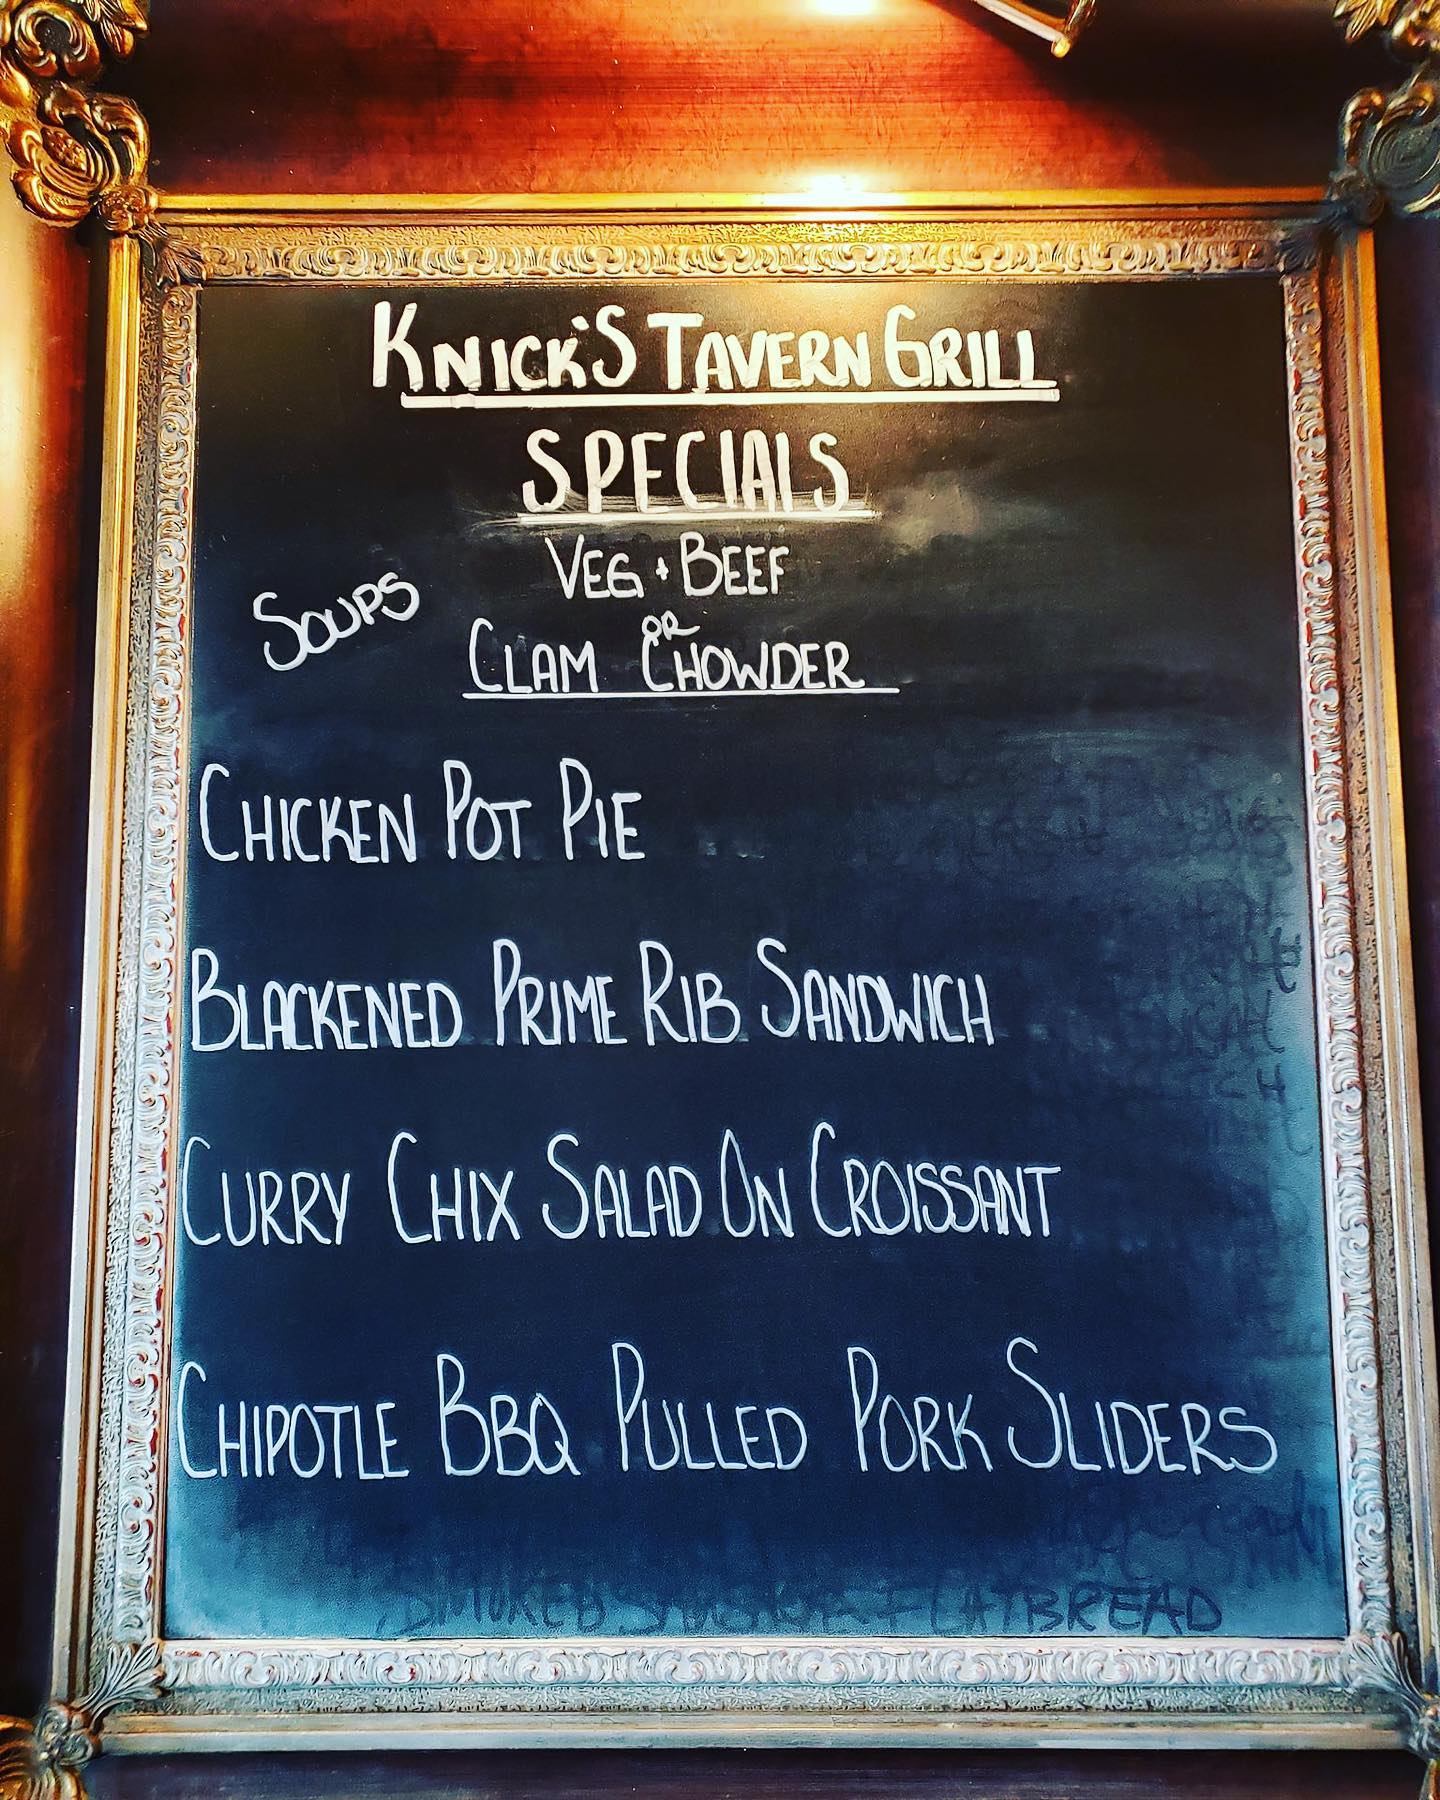 KNICK'S TAVERN GRILL
SPECIALS
SOUPS
VEG + BEEF
OR
CLAM CHOWDER
CHICKEN POT PIE
BLACKENED PRIME RIB SANDWICH
CURRY CHIX SALAD ON CROISSANT
CHIPOTLE BBQ PULLED PORK SLIDERS
FLATBREAD